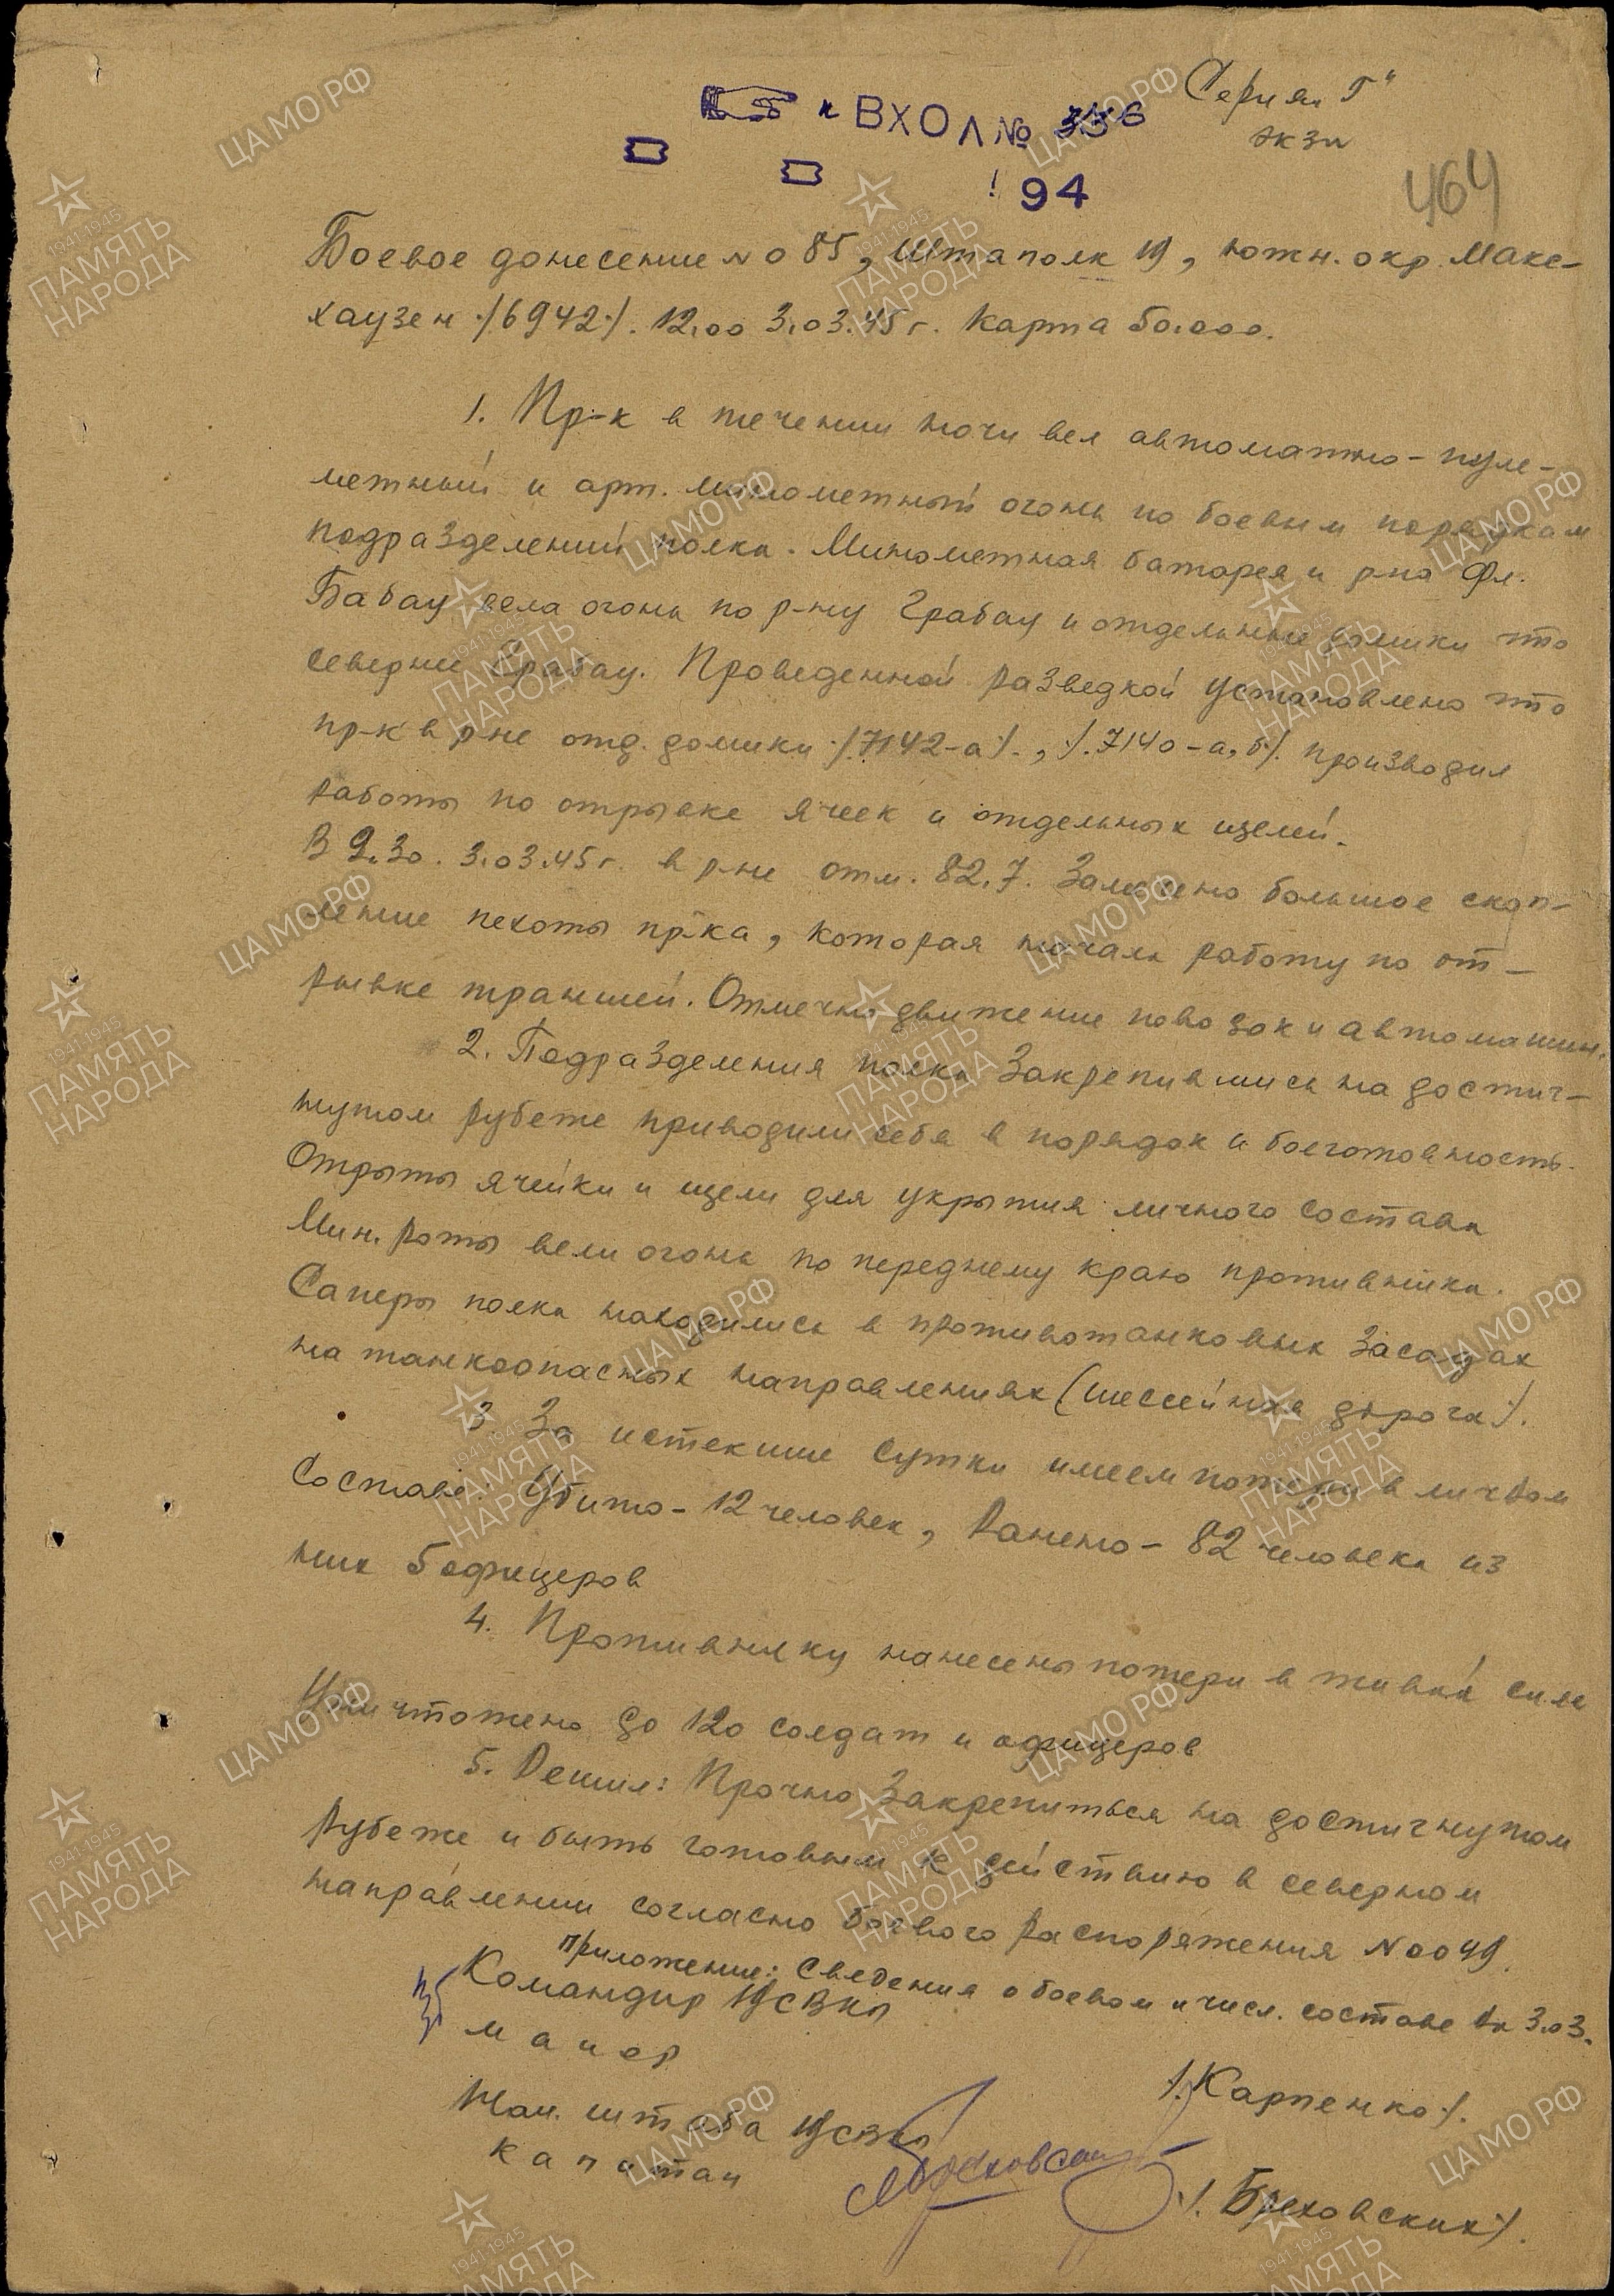 Серия „Г"
экз
ВХОД № 336
94
464
Боевое донесение № 085, Штаполк 19, южн. окр. Макс-
хаузен /6942/. 12.00 3.03.45 г. Карта 50.000.
1. Пр-к в течении ночи вел автоматно-пуле-
метный и арт. минометный огонь по боевым порядкам
подразделений полка. Минометная батарея и р-на Фл.
Бабау вела огонь по р-ну Грабау и отдельные домики что
севернее Грабау. Проведенной разведкой установлено что
пр-к в р-не отд. домики /.7142-а/., /.7140-а,б/. производил
работы по отрывке ячеек и отдельных щелей.
В 9.30. 3.03.45 г. в р-не отм. 82.7. Замечено большое скоп-
ление пехоты пр-ка, которая начала работу по от-
рывке траншей. Отмечено движение повозок и автомашин.
2. Подразделения полка Закрепившись на достиг-
нутом рубеже приводили себя в порядок и боеготовность.
Отрыты ячейки и щели для укрытия личного состава
Мин. роты вели огонь по переднему краю противника.
Саперы полка находились в противотанковых засадах
на танкоопасных направлениях (шессейная дорога/.
3 За истекшие сутки имеем потери в личном
составе: Убито - 12 человек, Ранено - 82 человека из
них 5 офицеров
4. Противнику нанесены потери в живой силе
Уничтожено до 120 солдат и офицеров
5. Решил: Прочно Закрепиться на достигнутом
рубеже и быть готовым к действию в северном
направлении согласно боевого распоряжения № 0049.
Приложение: Сведения о боевом и числ. составе на 3.03.
Командир 19 СВКП
майор
/.Карпенко/.
Нач. штаба 19 СВКП
капитан
/. Бреховских/.
ЦА МО РФ
1941-1945
ПАМЯТЬ
НАРОДА